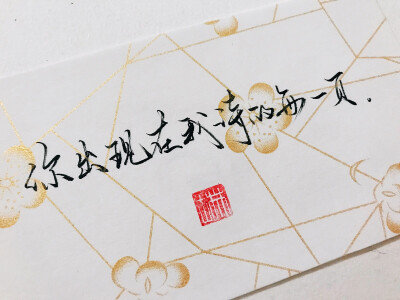 你出现在我诗的每一页.